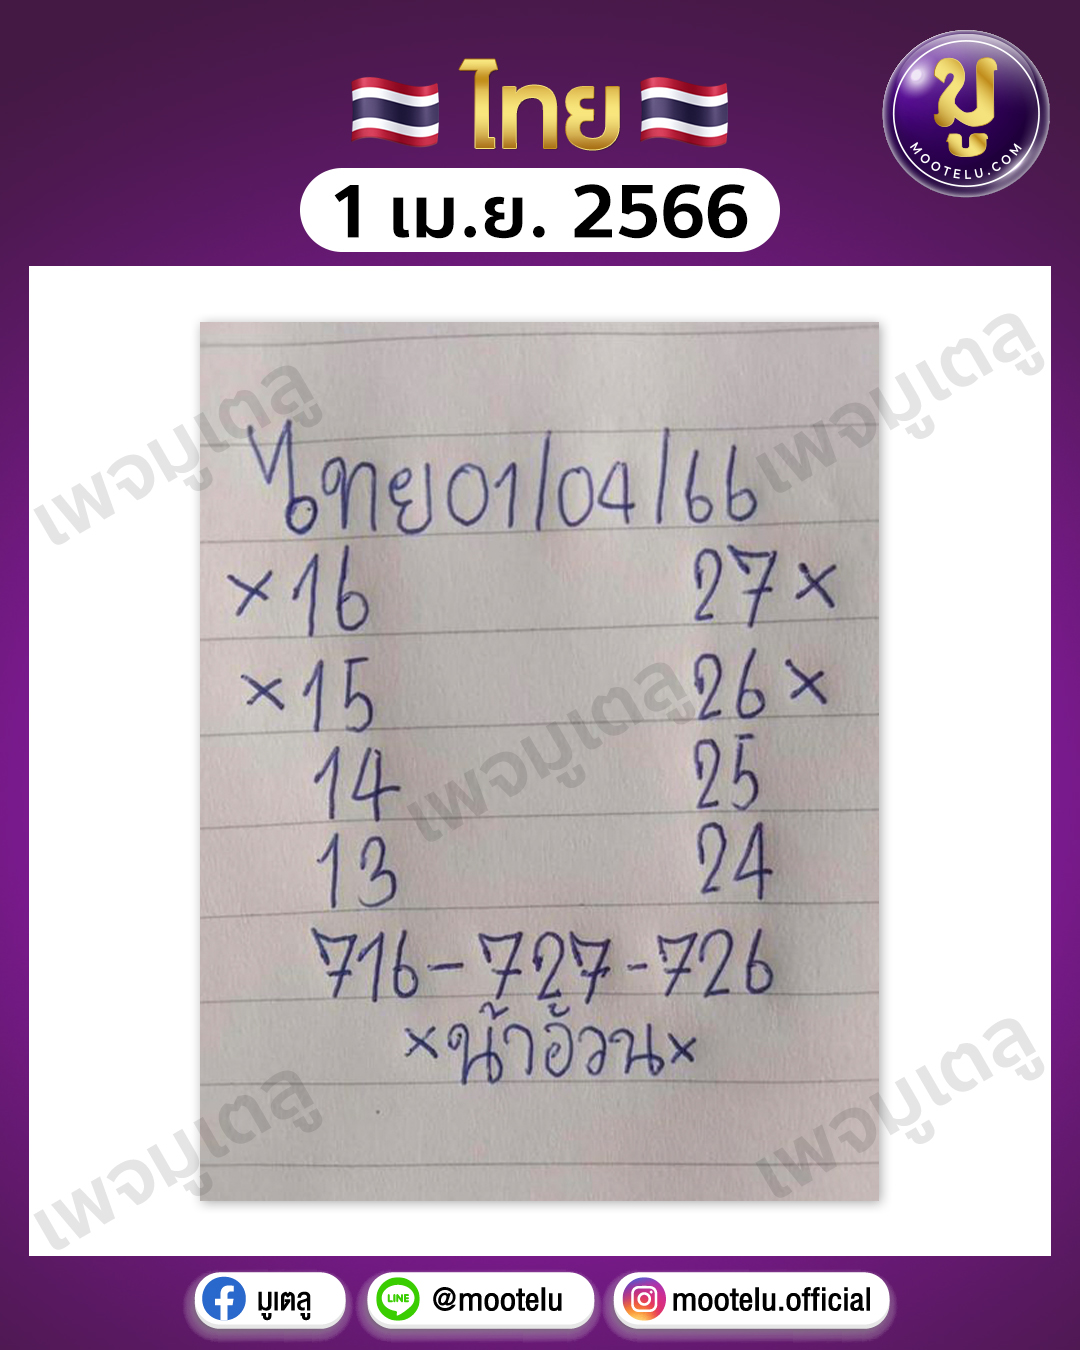 ไทย
มู
MOOTELU.COM
1 เม.ย. 2566
เพจมูเตลู
เพจมูเตลู
ไทย 01/04/66
×16 27×
×15 26×
เพจมูเตลู
14 25
13 24
716-727-726
×น้าอ้วน×
เพจมูเตลู
เพจมูเตลู
มูเตลู
LINE
@mootelu
mootelu.official